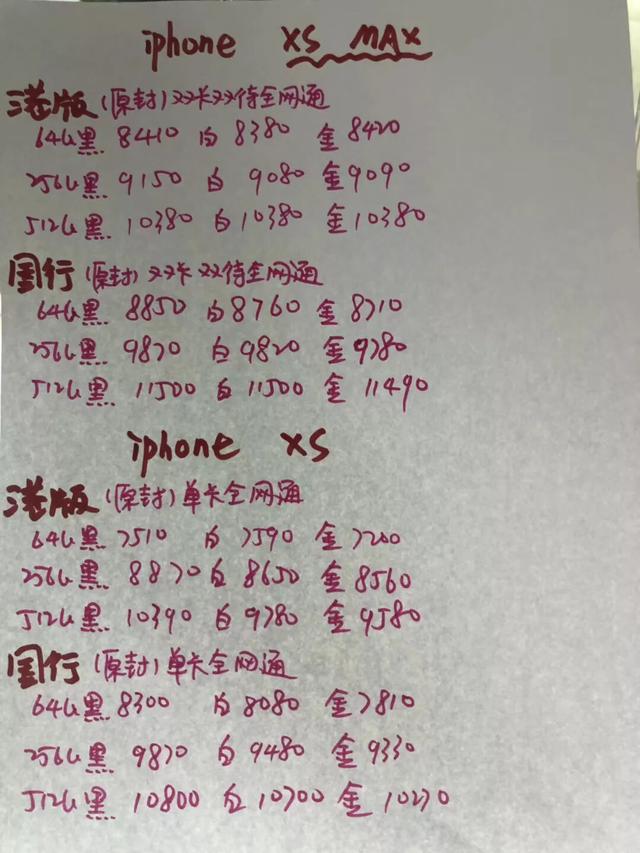 iphone XS MAX
港版(原封)双卡双待全网通
64G黑 8410 白 8380 金 8420
256G黑 9150 白 9080 金 9090
512G黑 10380 白 10380 金 10380
国行(原封)双卡双待全网通
64G黑 8850 白 8760 金 8710
256G黑 9870 白 9820 金 9780
512G黑 11500 白 11500 金 11490
iphone XS
港版(原封)单卡全网通
64G黑 7510 白 7590 金 7200
256G黑 8870 白 8650 金 8560
512G黑 10390 白 9780 金 9580
国行(原封)单卡全网通
64G黑 8300 白 8080 金 7810
256G黑 9870 白 9480 金 9330
512G黑 10800 白 10700 金 10270